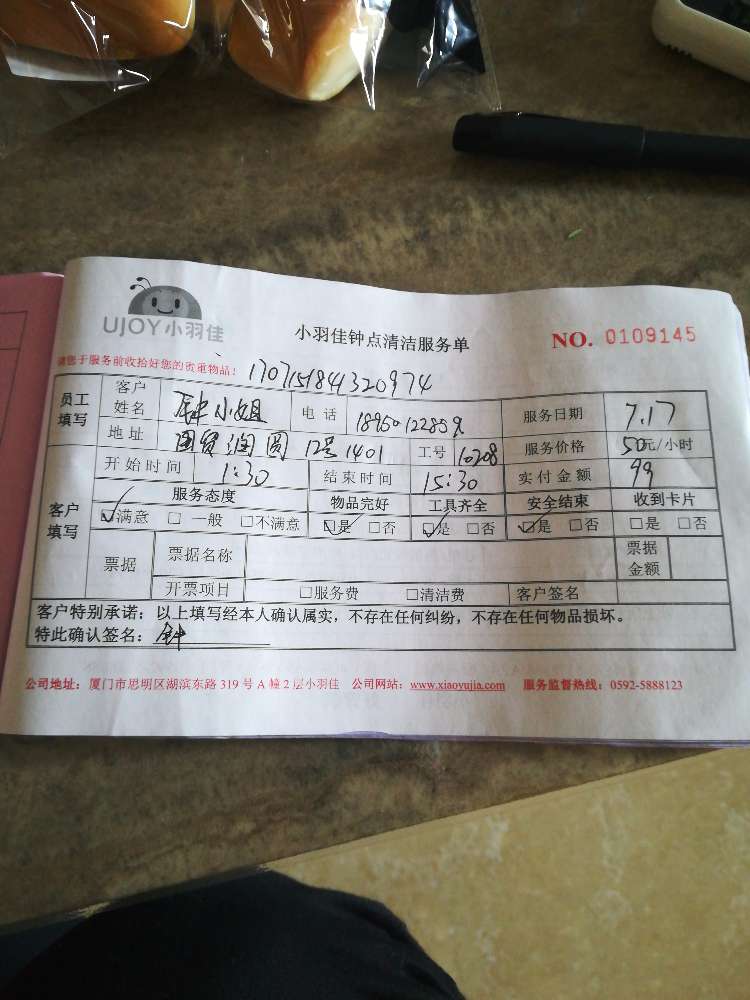 UJOY小羽佳
小羽佳钟点清洁服务单
NO. 0109145
请您于服务前收拾好您的贵重物品!
170715184320974
员工填写 客户姓名 钟小姐 电话 服务日期 7.17
地址 国贸润园 12号1401 工号 10208 服务价格 50元/小时
开始时间 1:30 结束时间 15:30 实付金额 99
客户填写 服务态度 物品完好 工具齐全 安全结束 收到卡片
☑满意 □一般 □不满意 ☑是 □否 ☑是 □否 ☑是 □否 □是 □否
票据 票据名称 票据金额
开票项目 □服务费 □清洁费 客户签名
客户特别承诺:以上填写经本人确认属实,不存在任何纠纷,不存在任何物品损坏。
特此确认签名:钟
公司地址:厦门市思明区湖滨东路 319 号 A 幢 2 层小羽佳 公司网站:www.xiaoyujia.com 服务监督热线:0592-5888123